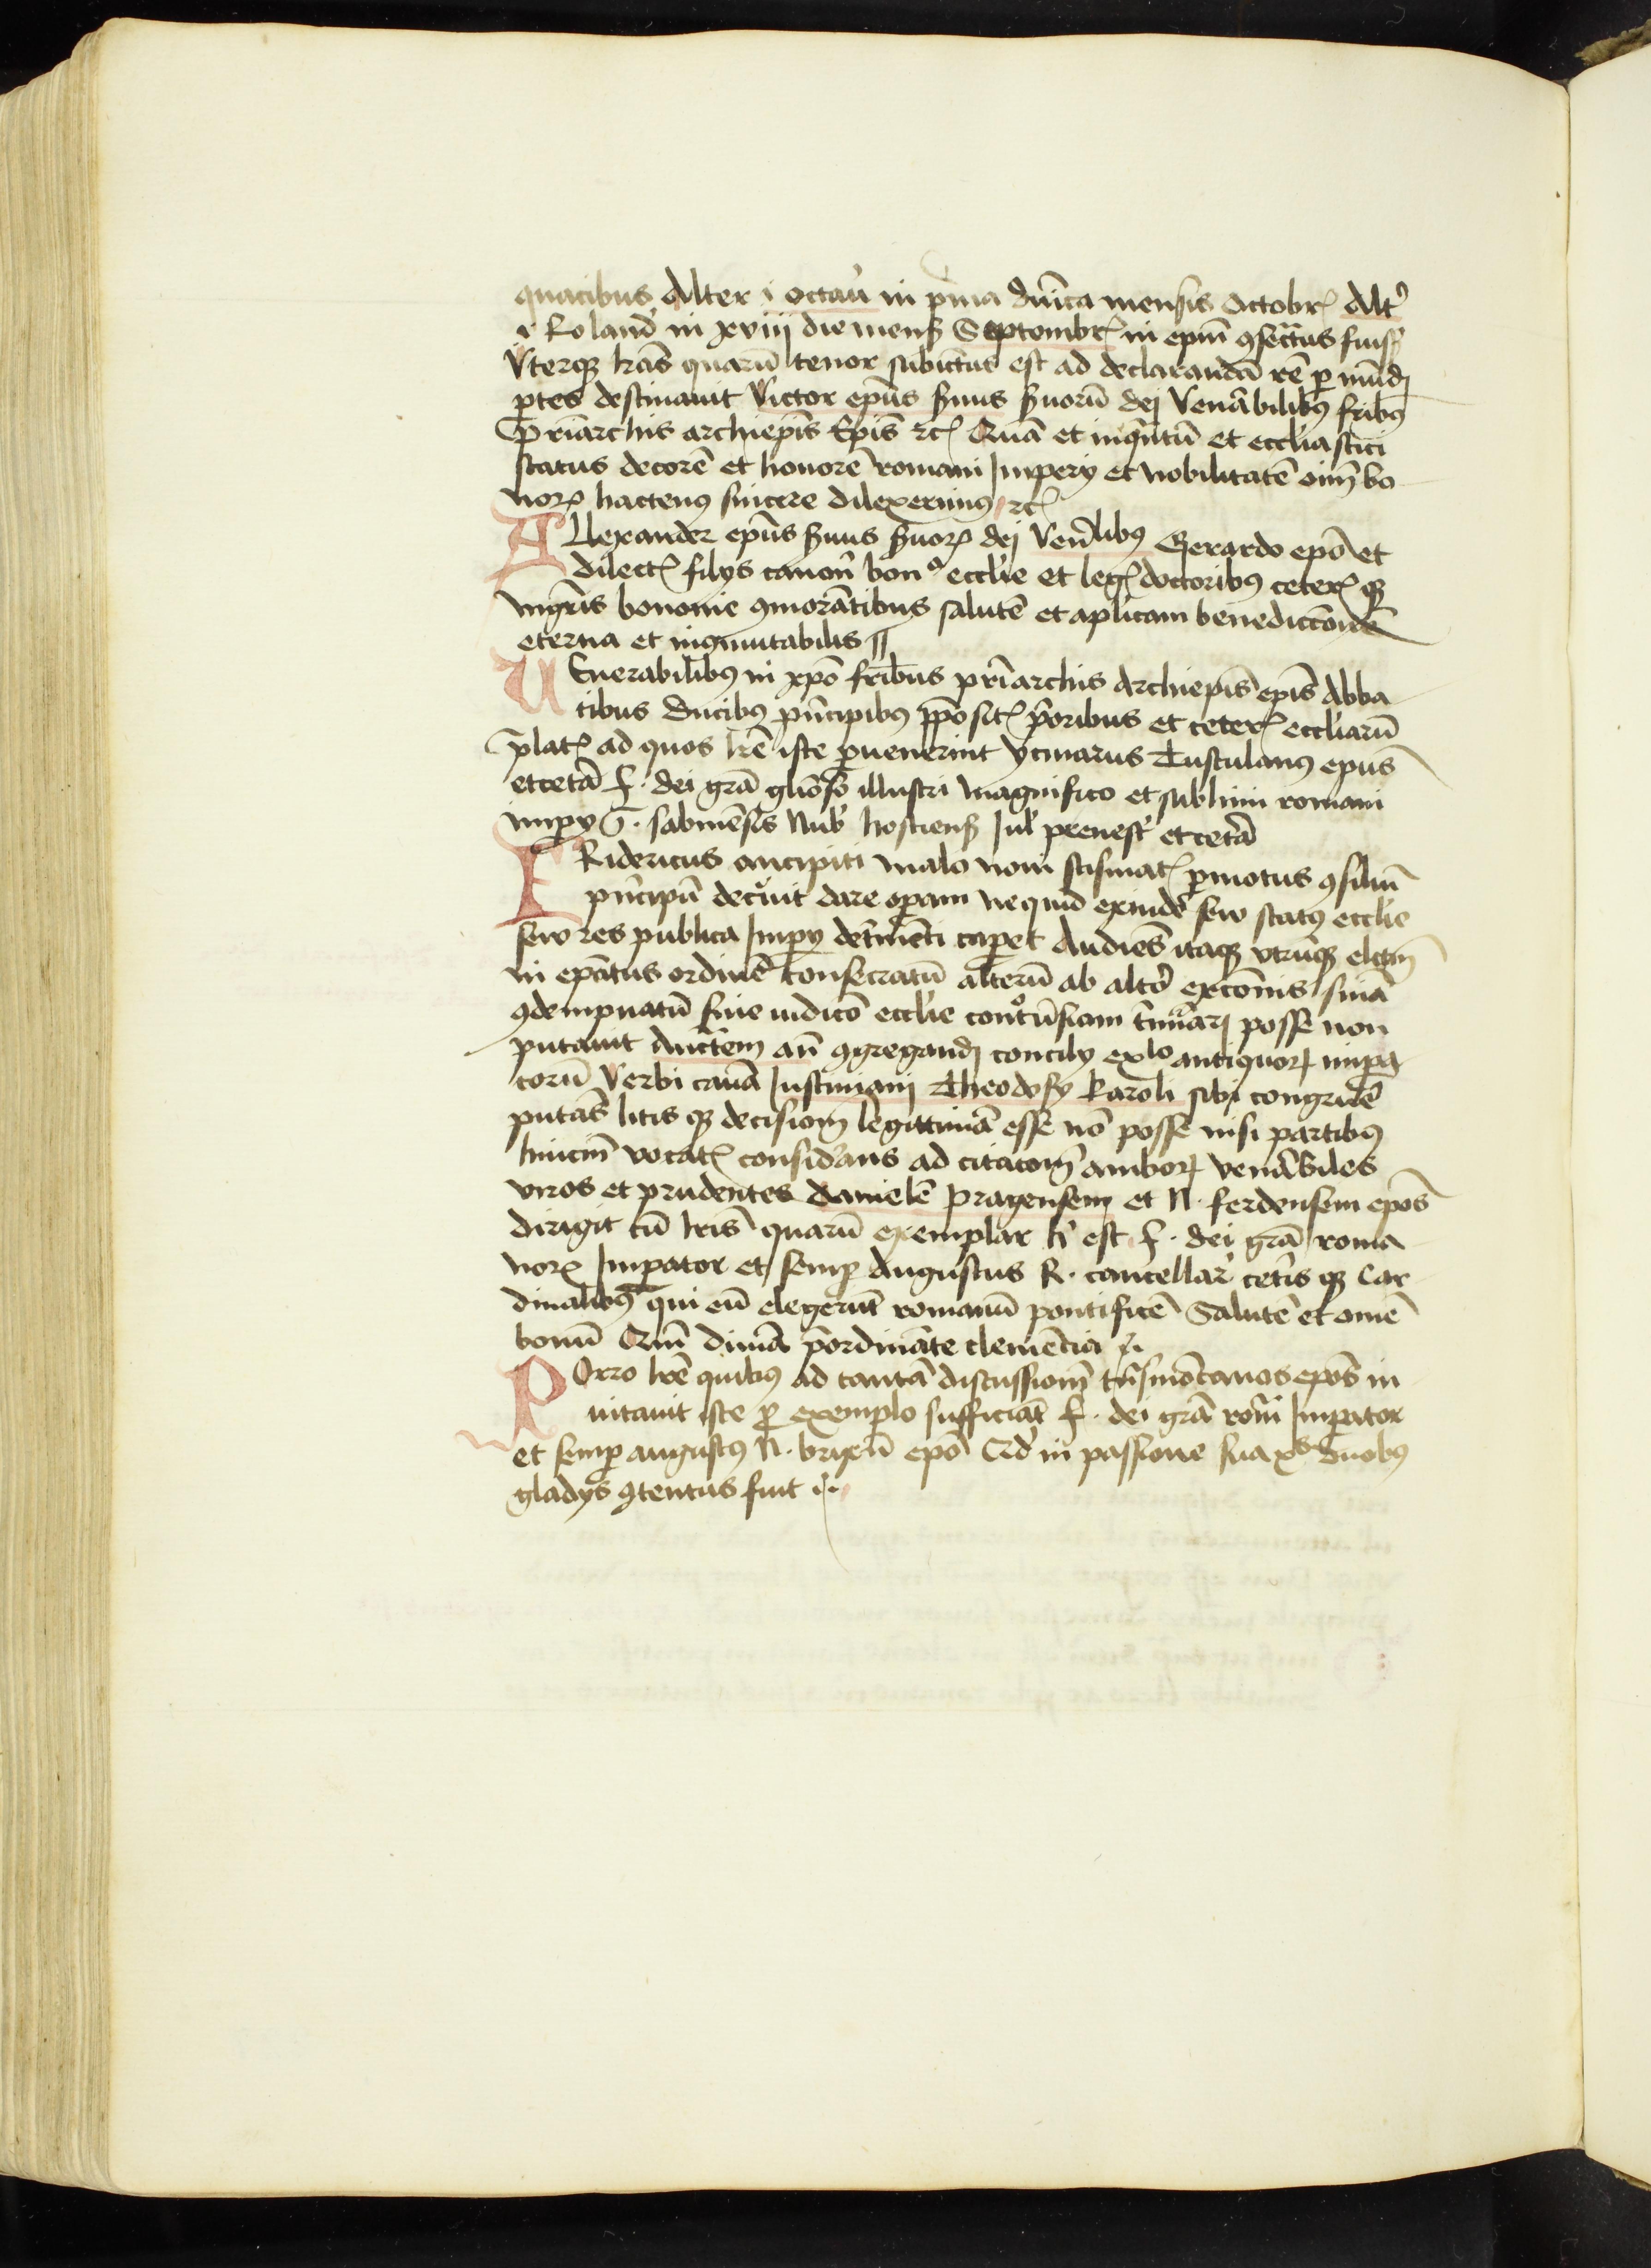 quacibus Alter .i. octaũ in p̃ma dñica mensis Octobrꝭ Alt̉
.i. Roland̉ in xviij die menß Septembrꝭ in epm̃ ꝯsecratus fuiß
Vterqꝫ lr̃as quarũ tenor subiectus est ad declarandã rẽ ꝑ mũdj
ꝑtes destinauit Victor ep̃us ẜuus ẜuorũ dej Venãbilibꝰ fr̃ibꝰ
Pr̃iarchis archiep̃is Ep̃is ꝛcꝭ Quã et inqũtũ et eccl̃iastici
status decorẽ et honorẽ romani Imperÿ et nobilitatẽ oim̃ bo
norꝝ hactenꝰ sincere dilexerimꝰ ꝛcꝭ
Allexander ep̃us ẜuus ẜuorꝝ dej Veñlibꝰ Gerardo ep̃o et
dilectꝭ filÿs canoñ bonꝰ eccl̃ie et legꝭ doctoribꝰ ceterꝭ qꝫ
mgr̃is bononie ꝯmorãtibus salutẽ et ap̃licam benedictõnẽ
eterna et inꝯmutabilis
Venerabilibꝰ in xp̃o fr̃ibus pr̃iarchis Archiep̃is ep̃is Abba
tibus Ducibꝰ p̃ncipibꝰ ppõsitꝭ p̃oribus et ceterꝭ eccl̃iarũ
p̃latꝭ ad quos lr̃e iste ꝑuenerint ycmarus Tusculanꝰ ep̃us
etcet̃a f. dei gr̃a gl̃ioso illustri magnifico et sublimi romani
impÿ G. sabinẽsis Nub̉ hostienß Iul̉ prenest̉ et cet̃a
Fridericus ancipiti malo nom̃ scismatꝭ ꝑmotus ꝯsiliũ
p̃ncipũ decreuit dare oꝑam ne quid exinde seu statꝰ eccl̃ie
seu res publica Impÿ det̉mẽti caꝑet Audiẽs itaqꝫ vtrũqꝫ elc̃m
in ep̃atus ordinẽ consecratũ alterũ ab altỏ excõmĩs sniã
ꝯdempnatũ sine iudicõ eccl̃ie cont̉ũsiam t̉mĩarj posse non
putauit Auctem añ ꝯgregandj concilÿ exlo antiquorꝝ impa
torũ Verbi causã Iustinianj Theodosÿ Karoli sibi congruẽ
putãs litis qꝫ decisiõem legittimã esse nõ posse nisi partibꝰ
hincin̄ vocatꝭ consid̉ans ad citacõem amborꝝ venãbiles
viros et prudentes Danielẽ Pragensem et N. ferdensem ep̃os
dirigit cũ lr̃is quarũ exemplar h̉ est f. dei gr̃a roma
norꝝ Impator et semꝑ Augustus R. cancellar̉ cet̉is qꝫ Car
dinalibꝰ qui eũ elegerũt romanũ pontificẽ Salutẽ et omẽ
bonũ Qm̃ diuĩa p̃ordinãte clemẽcia ꝛc
Porro lr̃e quibꝰ ad tantã discussiõem tñsmõtanos ep̃os in
uitauit iste ꝓ exemplo sufficiãt f. dei gr̃a rom̃ Impator
et semꝑ augustꝰ N. brixiñ ep̃o Qd̉ in passione sua xꝰ duobꝰ
gladÿs ꝯtentus fuit ꝛc